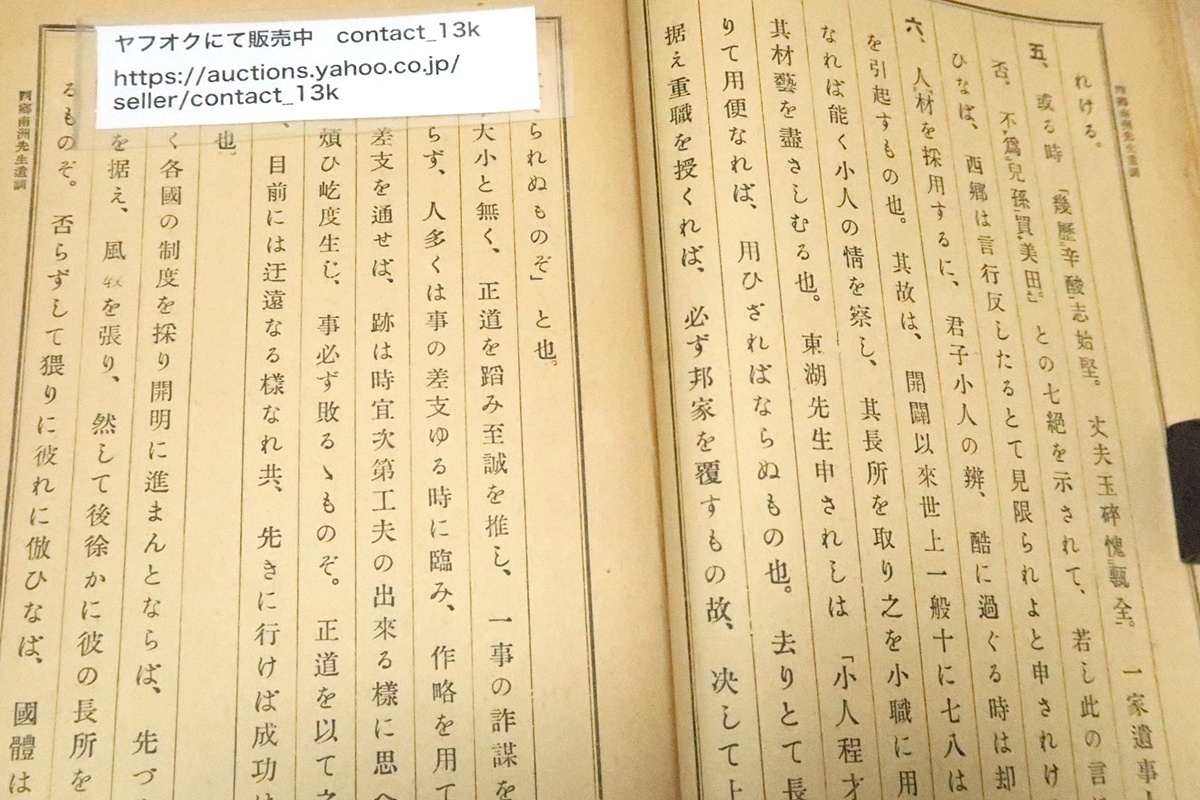 ヤフオクにて販売中　contact_13k
https://auctions.yahoo.co.jp/
seller/contact_13k
西鄕南洲先生遺訓
れける。
五、或る時「幾歷辛酸志始堅。丈夫玉碎愧甎全。一家遺事人
否、不爲兒孫買美田。」との七絕を示されて、若し此の言
ひなば、西鄕は言行反したるとて見限られよと申されけ
六、人材を採用するに、君子小人の辨、酷に過ぐる時は却
を引起すもの也。其故は、開闢以來世上一般十に七八は
なれば能く小人の情を察し、其長所を取り之を小職に用
其材藝を盡さしむる也。東湖先生申されしは「小人程才
りて用便なれば、用ひざればならぬもの也。去りとて長
据え重職を授くれば、必ず邦家を覆すもの故、決して上
られぬものぞ」と也。
大小と無く、正道を蹈み至誠を推し、一事の詐謀を
らず、人多くは事の差支ゆる時に臨み、作略を用て
差支を通せば、跡は時宜次第工夫の出來る樣に思へ
煩ひ屹度生じ、事必ず敗るゝものぞ。正道を以て之
、目前には迂遠なる樣なれ共、先きに行けば成功は
也。
く各國の制度を採り開明に進まんとならば、先づ
を据え、風敎を張り、然して後徐かに彼の長所を
るものぞ。否らずして猥りに彼れに倣ひなば、國體は
西鄕南洲先生遺訓